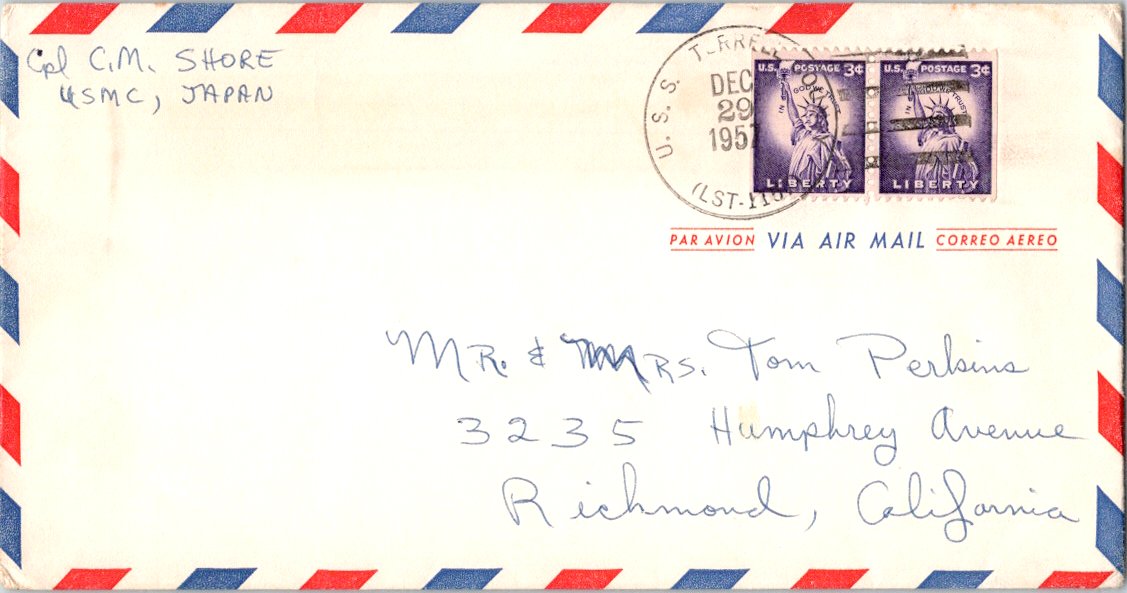 Cpl C.M. SHORE
USMC, JAPAN
U. S. S. TERRELL CO.
DEC
29
1957
(LST-1157)
U.S. POSTAGE 3¢
IN GOD WE TRUST
LIBERTY
U.S. POSTAGE 3¢
IN GOD WE TRUST
LIBERTY
PAR AVION VIA AIR MAIL CORREO AEREO
MR. & MRS. Tom Perkins
3235 Humphrey Avenue
Richmond, California